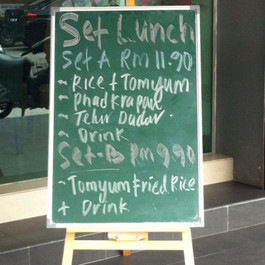 Set Lunch
Set A RM 11.90
- Rice + Tomyum
- Phad Kra Paw
- Telur Dadar
- Drink
Set-B RM 9.90
- Tomyum Fried Rice
+ Drink